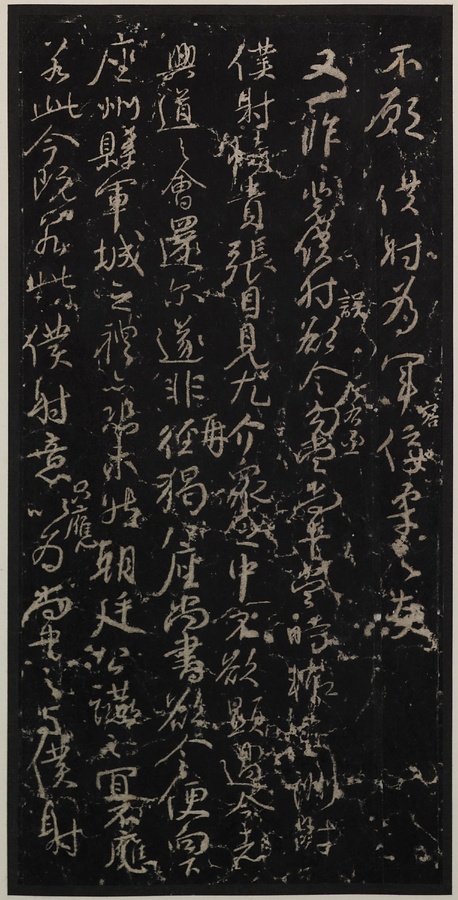 不願僕射為軍容佞柔之友
又一昨裴僕射誤欲令左右丞勾當尚書當時輒有酬對
僕射恃貴張目見尤介眾之中不欲顯過今者
興道之會還尔遂非再猲八座尚書欲令便向下
座州縣軍城之禮亦恐未然朝廷公讌之冝不應
若此今既若此僕射意只應為尚書之与僕射